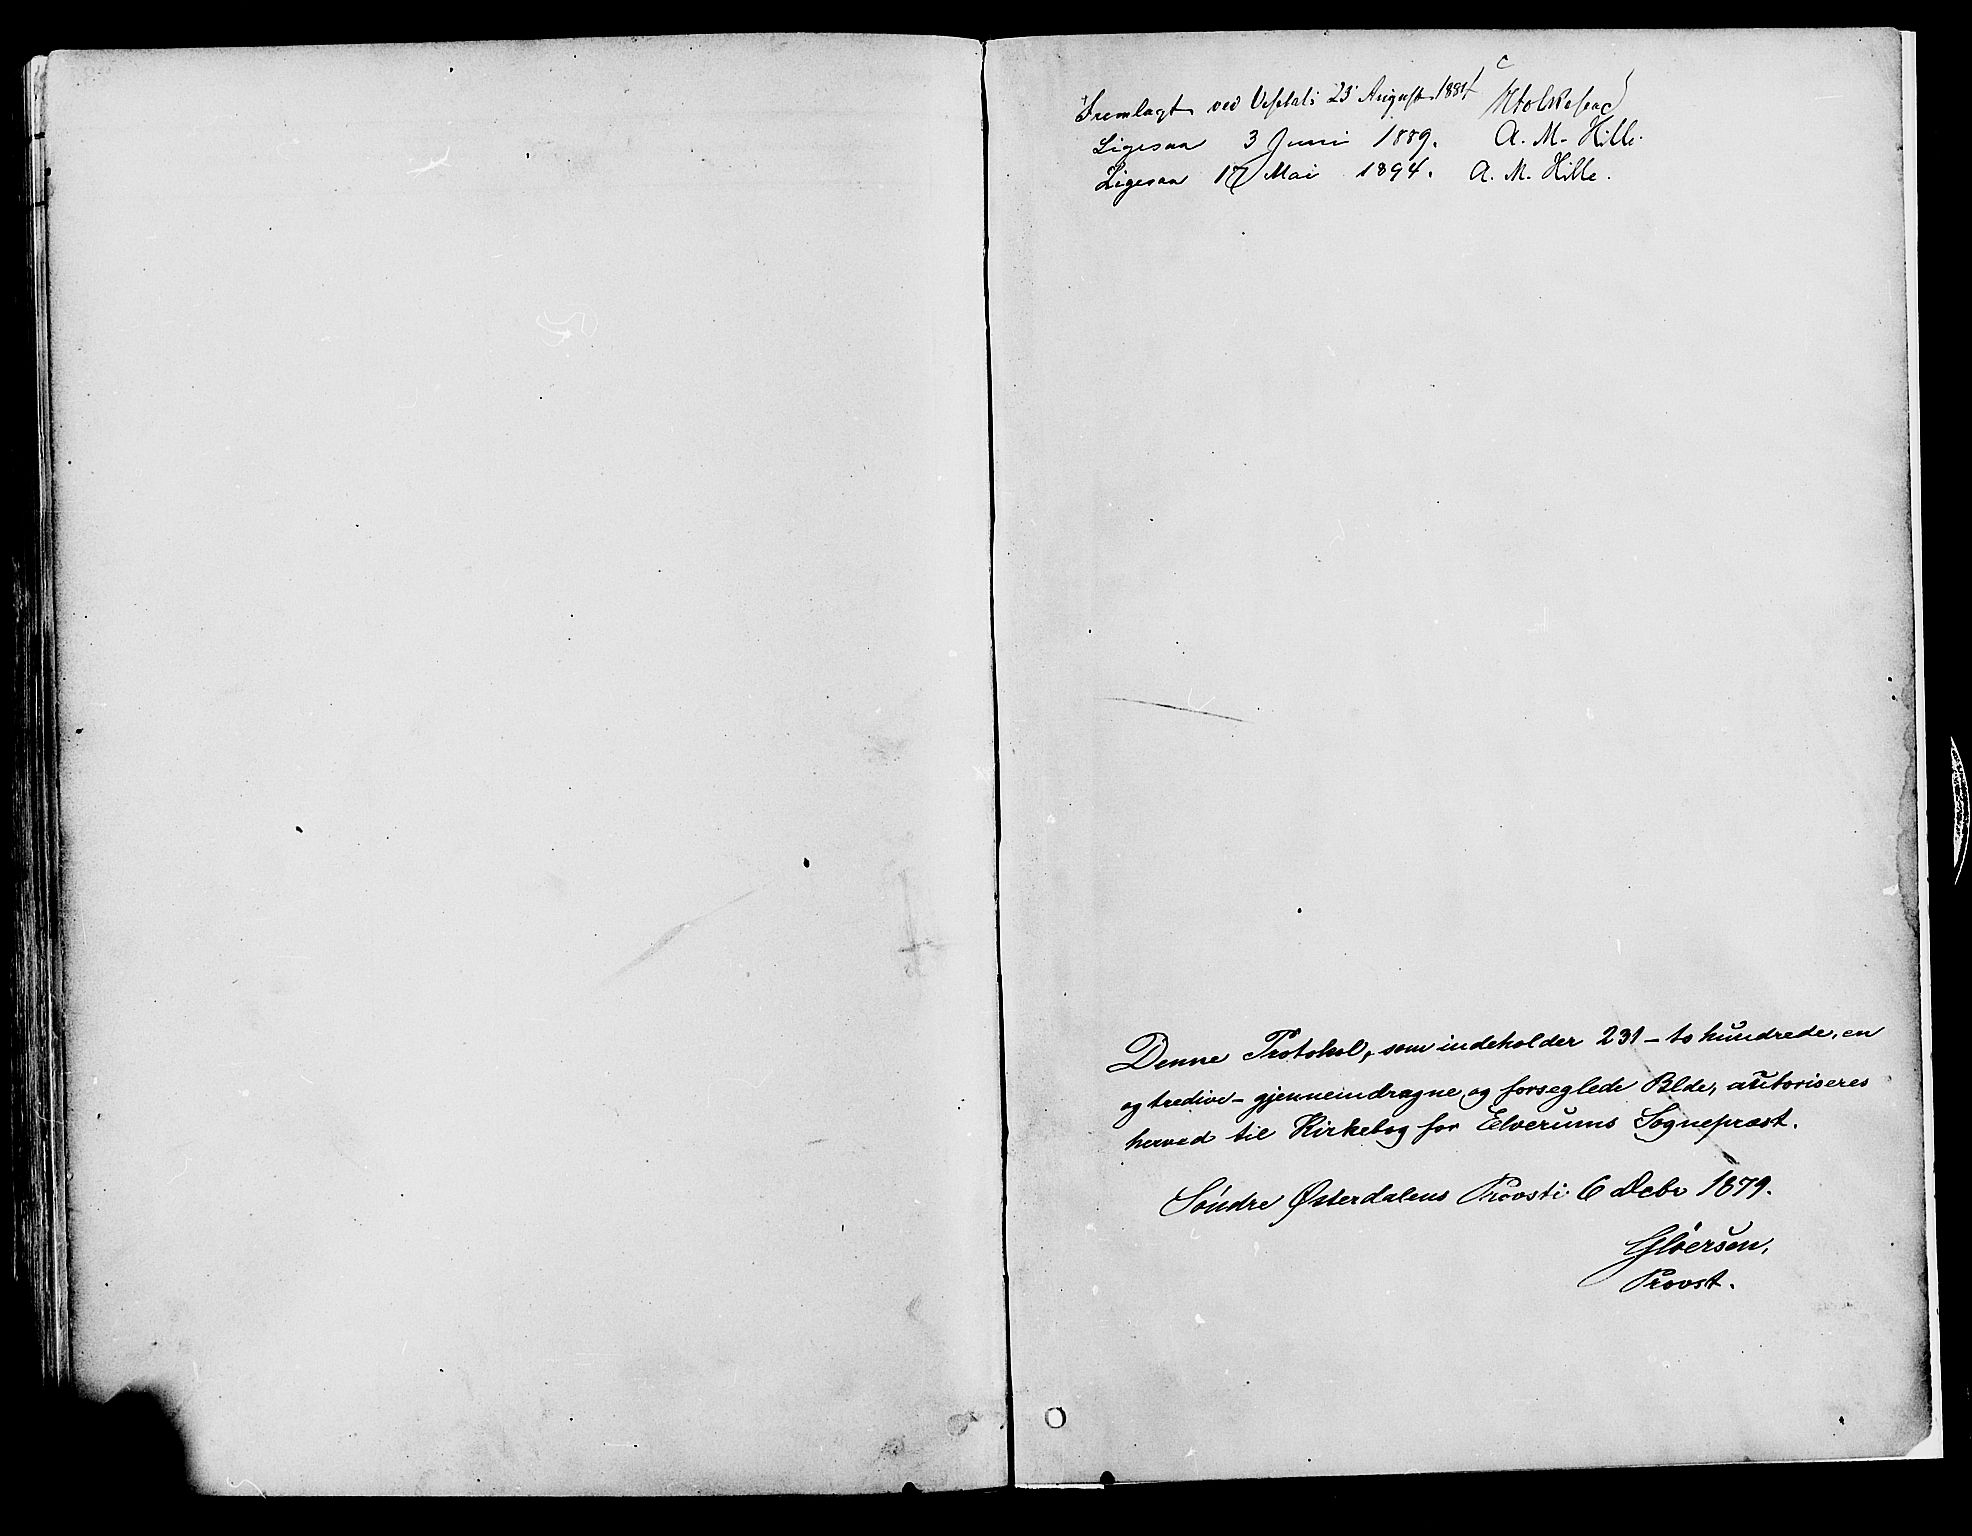 Fremlagt ved Visitats 23 August 1884
Ligesaa 3 Juni 1889. A. M. Hille.
Ligesaa 17 Mai 1894. A. M. Hille.
Denne Protokol, som indeholder 231 – to hundrede, en
og tredive – gjennemdragne og forseglede Blde, autoriseres
herved til Kirkebog for Elverums Sognepræst.
Søndre Østerdalens Provsti 6 Debr 1879.
Gløersen,
Provst.